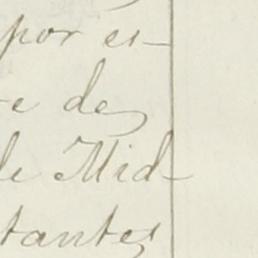 por es-
e de
le Mid-
tantes